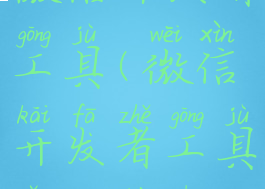 gōng jù wēi xìn
工具(微信
kāi fā zhě gōng jù
开发者工具